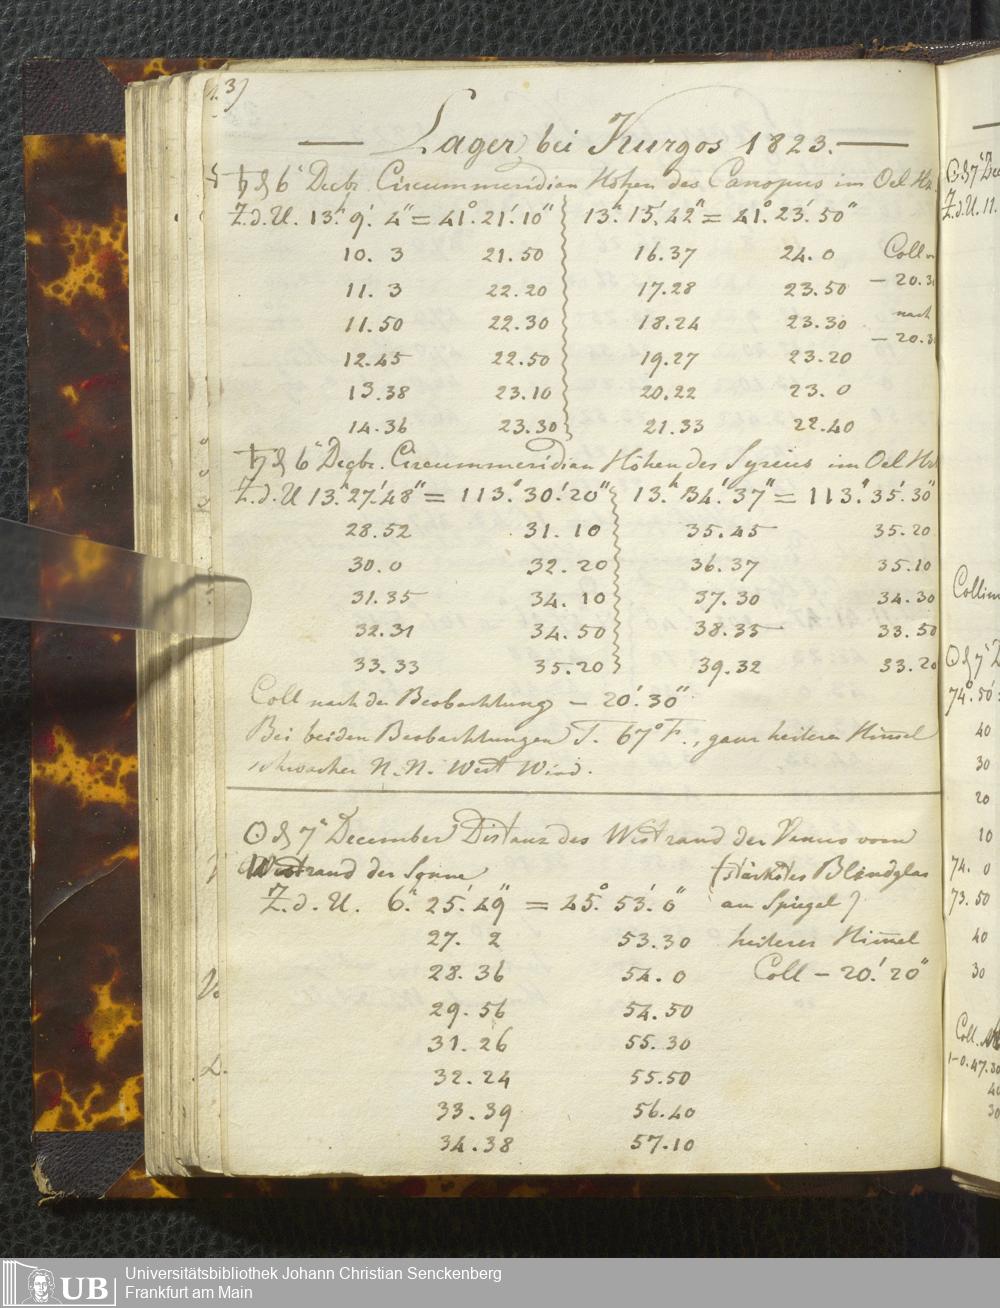 3)
— Lager bei Kurgos 1823. —
♄ d 6ⁿ Decbr. Circummeridian Höhen des Canopus im Oel Hz.
Z.d.U. 13.ʰ 9.′ 4″ = 41.° 21.′ 10″ 13.ʰ 15.′ 42″ = 41.° 23.′ 50″
10. 3 21.50 16.37 24.0 Coll
11. 3 22.20 17.28 23.50 – 20.3
11.50 22.30 18.24 23.30 nach
12.45 22.50 19.27 23.20 – 20.3
13.38 23.10 20.22 23.0
14.36 23.30 21.33 22.40
♄ d 6ⁿ Decbr. Circummeridian Höhen des Syrius im Oel Hz
Z.d.U 13.ʰ 27.′ 48″ = 113.° 30.′ 20″ 13.ʰ 34.′ 37″ = 113.° 35.′ 30″
28.52 31.10 35.45 35.20
30.0 32.20 36.37 35.10
31.35 34.10 37.30 34.30
32.31 34.50 38.35 33.50
33.33 35.20 39.32 33.20
Coll nach der Beobachtung – 20.′ 30″
Bei beiden Beobachtungen T. 67° F., ganz heiterer Himel
schwacher N.N. West Wind.
☉ d 7ⁿ December Distanz des Westrand der Venus vom
Westrand der Sonne (stärkstes Blendglas
Z.d.U. 6.ʰ 25.′ 49″ = 45.° 53.′ 0″ am Spiegel)
27. 2 53.30 heiterer Himel
28.36 54.0 Coll – 20.′ 20″
29.56 54.50
31.26 55.30
32.24 55.50
33.39 56.40
34.38 57.10
☉ d 7ⁿ Dec
Z.d.U. 11.
Collim
☉ d 7ⁿ D
74.° 50′
40
30
20
10
74. 0
73.50
40
30
Coll.
1-0.47.30
40
30
UB
Universitätsbibliothek Johann Christian Senckenberg
Frankfurt am Main